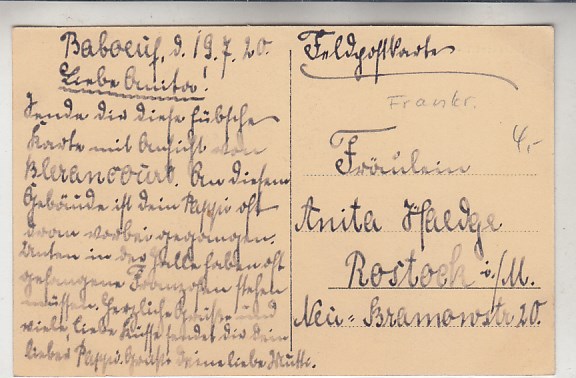 Baboeuf, d. 19.7.20.
Liebe Anita!
Sende dir diese hübsche
Karte mit Ansicht von
Blerancourt. An diesem
Gebäude ist dein Pappi oft
dran vorbei gegangen.
Unten in der Halle haben oft
gefangene Franzosen stehen
müssen. Herzliche Grüße und
viele liebe Küsse sendet dir dein
lieber Pappi. Grüße deine liebe Mutti.
Feldpostkarte
Frankr.
4,-
Fräulein
Anita Haedge
Rostock i./M.
Neu-Bramowstr. 20.